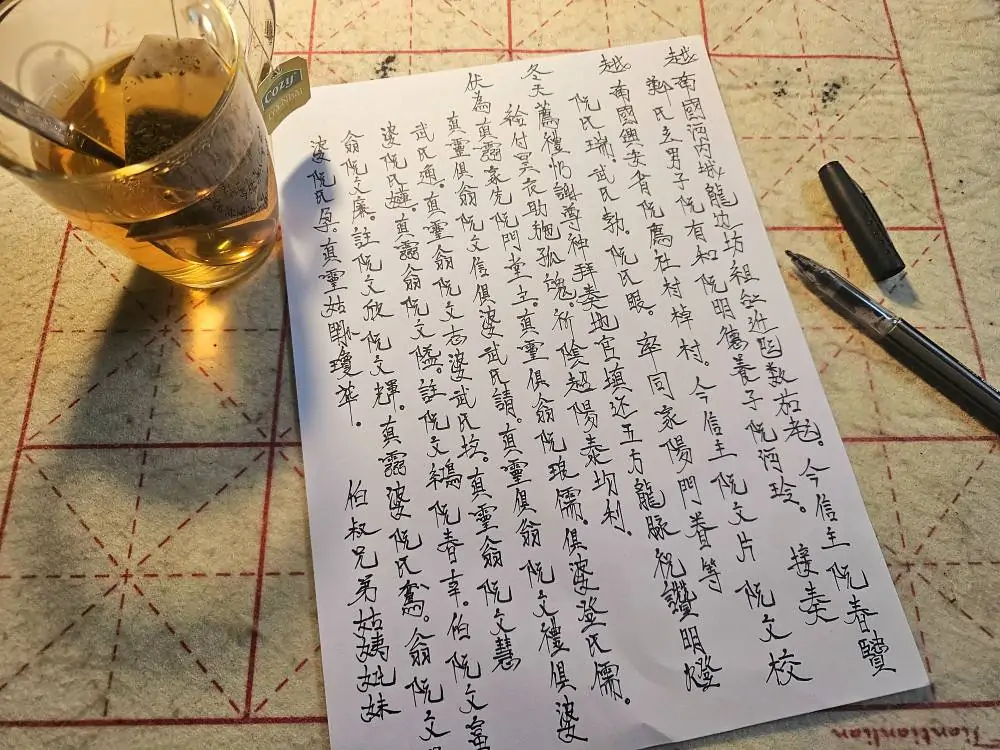 越南國河内城龍边坊組
今信主阮春贊
鄭氏玄男子阮有和阮明德養子阮河玲。 接奏
越南國興安省阮廌社村棹村。今信主阮文片 阮文校
阮氏瑞。武氏勃。阮氏眼。率同家陽門眷等
冬天薦禮 謝尊神拜奏地官填还五方龍脉祝讚明燈
給付冥衣助 孤魂。祈陰超陽泰均利。
伏為真靈 先阮門堂主。真靈俱翁阮琅儒。俱婆登氏儒。
真靈俱翁阮文信俱婆武氏請。真靈俱翁阮文禮俱婆
武氏適。真靈翁阮文志婆武氏坟。真靈翁阮文慧
婆阮氏 。真靈翁阮文隘。註阮文 阮春辛。伯阮文富
翁阮文廉。註阮文欣阮文輝。真靈婆阮氏鴦。翁阮文
婆阮氏孕。真靈姑 瓊華。 伯叔兄弟姑姨姊妹
Cozy
Tiantianlian